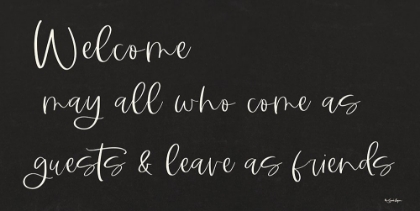 Welcome
may all who come as
guests & leave as friends